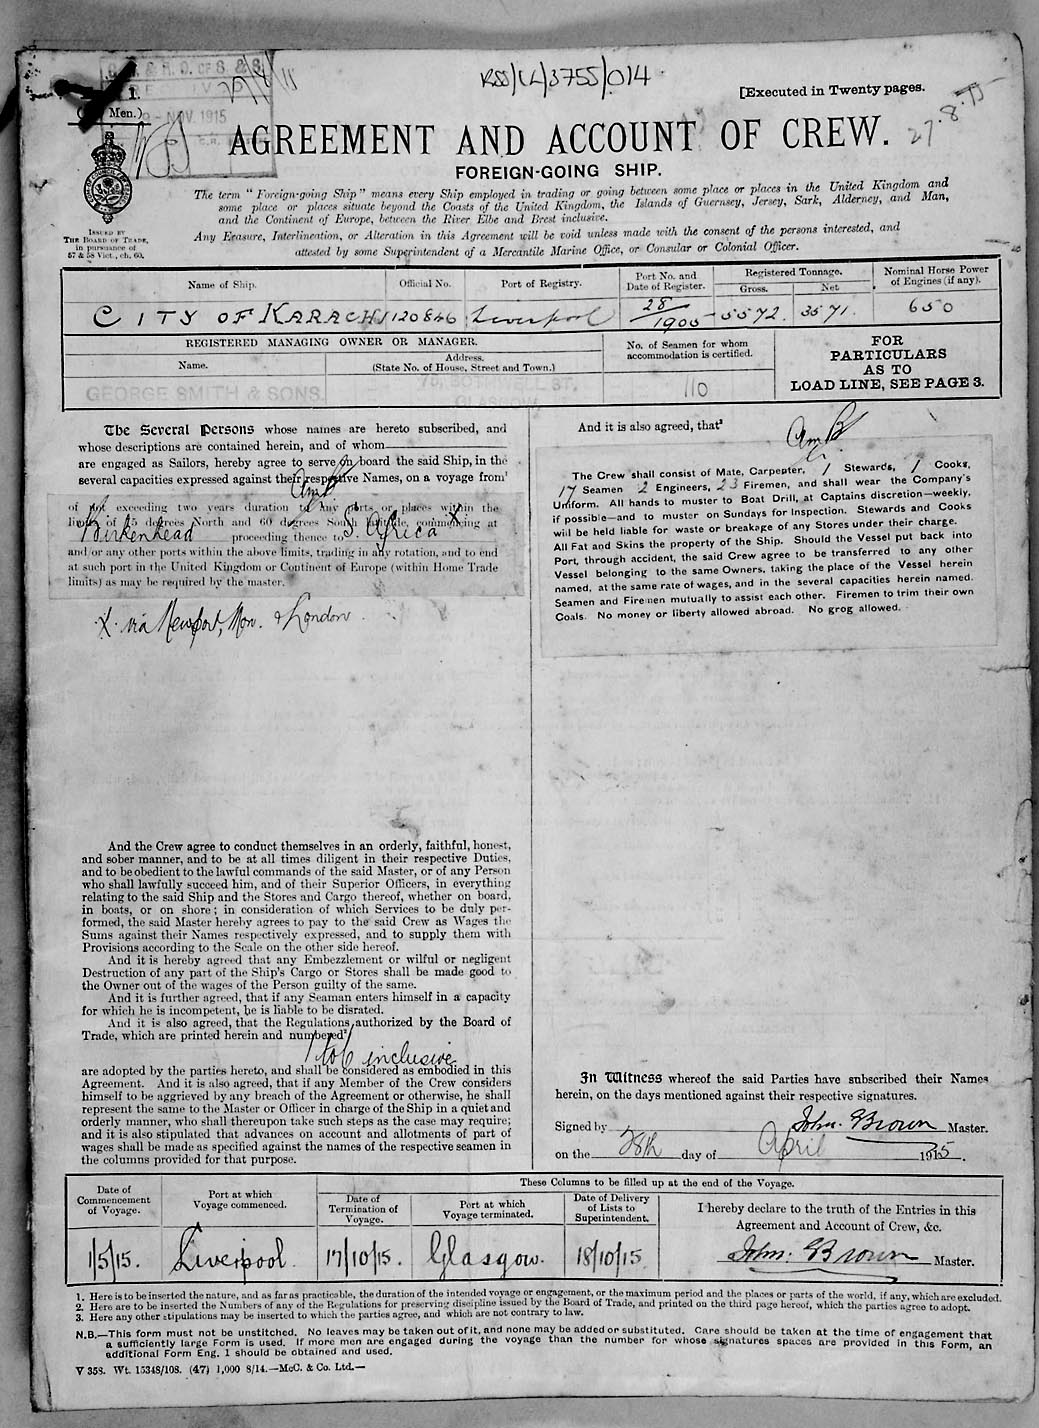 RSS/CL/3755/014
[Executed in Twenty pages.
R. G. & R. O. OF S. & S.
RECEIVED
NOV. 1915
1.
Men.)
27.8.15
AGREEMENT AND ACCOUNT OF CREW.
FOREIGN-GOING SHIP.
The term "Foreign-going Ship" means every Ship employed in trading or going between some place or places in the United Kingdom and
some place or places situate beyond the Coasts of the United Kingdom, the Islands of Guernsey, Jersey, Sark, Alderney, and Man,
and the Continent of Europe, between the River Elbe and Brest inclusive.
Any Erasure, Interlineation, or Alteration in this Agreement will be void unless made with the consent of the persons interested, and
attested by some Superintendent of a Mercantile Marine Office, or Consular or Colonial Officer.
ISSUED BY
THE BOARD OF TRADE,
in pursuance of
57 & 58 Vict., ch. 60.
Name of Ship. Official No. Port of Registry. Port No. and Date of Register. Registered Tonnage. Gross. Net Nominal Horse Power of Engines (if any).
CITY OF KARACHI 120846 Liverpool 28/1905 5572. 3571. 650
REGISTERED MANAGING OWNER OR MANAGER.
Name. Address.
(State No. of House, Street and Town.)
No. of Seamen for whom
accommodation is certified.
FOR
PARTICULARS
AS TO
LOAD LINE, SEE PAGE 3.
GEORGE SMITH & SONS. 75, BOTHWELL ST. 110
GLASGOW.
The Several Persons whose names are hereto subscribed, and
whose descriptions are contained herein, and of whom
are engaged as Sailors, hereby agree to serve on board the said Ship, in the
several capacities expressed against their respective Names, on a voyage from¹
of not exceeding two years duration to any ports or places within the
limits of 75 degrees North and 60 degrees South latitude, commencing at
Birkenhead proceeding thence to S. Africa X
and/or any other ports within the above limits, trading in any rotation, and to end
at such port in the United Kingdom or Continent of Europe (within Home Trade
limits) as may be required by the master.
X via Newport, Mon. & London
And the Crew agree to conduct themselves in an orderly, faithful, honest,
and sober manner, and to be at all times diligent in their respective Duties,
and to be obedient to the lawful commands of the said Master, or of any Person
who shall lawfully succeed him, and of their Superior Officers, in everything
relating to the said Ship and the Stores and Cargo thereof, whether on board,
in boats, or on shore; in consideration of which Services to be duly per-
formed, the said Master hereby agrees to pay to the said Crew as Wages the
Sums against their Names respectively expressed, and to supply them with
Provisions according to the Scale on the other side hereof.
And it is hereby agreed that any Embezzlement or wilful or negligent
Destruction of any part of the Ship's Cargo or Stores shall be made good to
the Owner out of the wages of the Person guilty of the same.
And it is further agreed, that if any Seaman enters himself in a capacity
for which he is incompetent, he is liable to be disrated.
And it is also agreed, that the Regulations authorized by the Board of
Trade, which are printed herein and numbered²
1 to 6 inclusive
are adopted by the parties hereto, and shall be considered as embodied in this
Agreement. And it is also agreed, that if any Member of the Crew considers
himself to be aggrieved by any breach of the Agreement or otherwise, he shall
represent the same to the Master or Officer in charge of the Ship in a quiet and
orderly manner, who shall thereupon take such steps as the case may require;
and it is also stipulated that advances on account and allotments of part of
wages shall be made as specified against the names of the respective seamen in
the columns provided for that purpose.
And it is also agreed, that³
The Crew shall consist of Mate, Carpenter, 1 Stewards, 1 Cooks,
17 Seamen 2 Engineers, 23 Firemen, and shall wear the Company's
Uniform. All hands to muster to Boat Drill, at Captains discretion—weekly,
if possible—and to muster on Sundays for Inspection. Stewards and Cooks
will be held liable for waste or breakage of any Stores under their charge.
All Fat and Skins the property of the Ship. Should the Vessel put back into
Port, through accident, the said Crew agree to be transferred to any other
Vessel belonging to the same Owners, taking the place of the Vessel herein
named, at the same rate of wages, and in the several capacities herein named.
Seamen and Firemen mutually to assist each other. Firemen to trim their own
Coals. No money or liberty allowed abroad. No grog allowed.
In Witness whereof the said Parties have subscribed their Names
herein, on the days mentioned against their respective signatures.
Signed by John. Brown Master.
on the 28th day of April 1915.
These Columns to be filled up at the end of the Voyage.
Date of Commencement of Voyage. Port at which Voyage commenced. Date of Termination of Voyage. Port at which Voyage terminated. Date of Delivery of Lists to Superintendent. I hereby declare to the truth of the Entries in this
Agreement and Account of Crew, &c.
1/5/15. Liverpool. 17/10/15. Glasgow. 18/10/15. John. Brown Master.
1. Here is to be inserted the nature, and as far as practicable, the duration of the intended voyage or engagement, or the maximum period and the places or parts of the world, if any, which are excluded.
2. Here are to be inserted the Numbers of any of the Regulations for preserving discipline issued by the Board of Trade, and printed on the third page hereof, which the parties agree to adopt.
3. Here any other stipulations may be inserted to which the parties agree, and which are not contrary to law.
N.B.—This form must not be unstitched. No leaves may be taken out of it, and none may be added or substituted. Care should be taken at the time of engagement that
a sufficiently large Form is used. If more men are engaged during the voyage than the number for whose signatures spaces are provided in this Form, an
additional Form Eng. 1 should be obtained and used.
V 358. Wt. 15348/108. (47) 1,000 8/14.—McC. & Co. Ltd.—